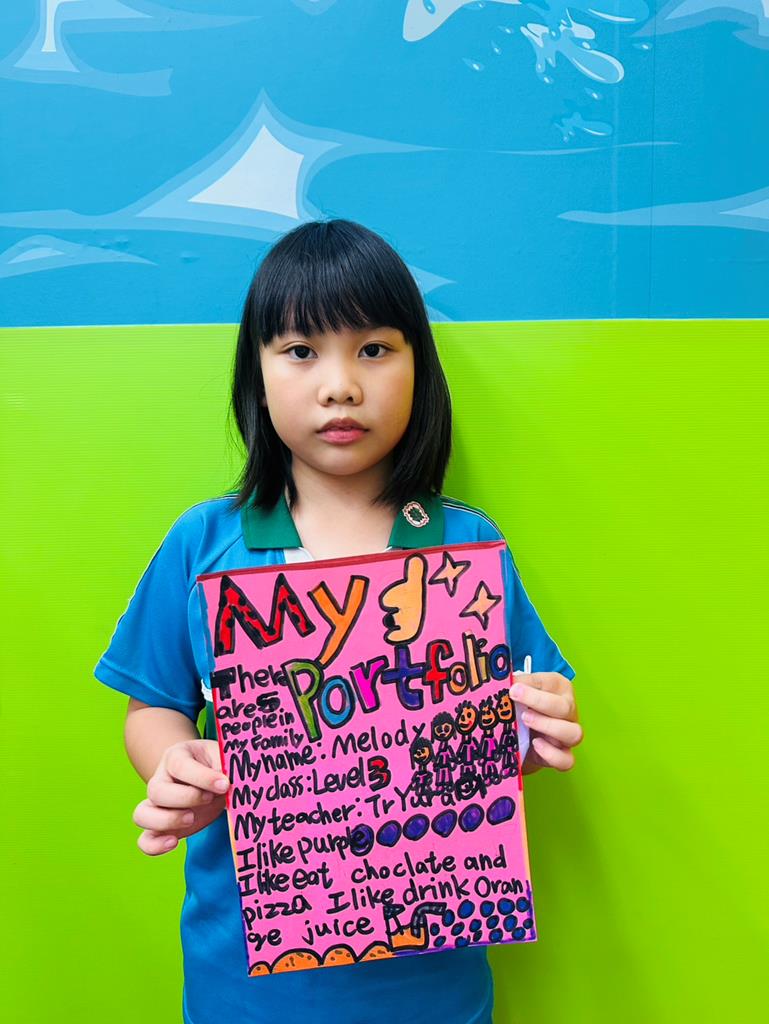 My
Portfolio
There
are 5
people in
My Family
My name: Melody
My class: Level 3
My teacher: Tr Yura
I like purple
I like eat choclate and
pizza I like drink Oran
ge juice